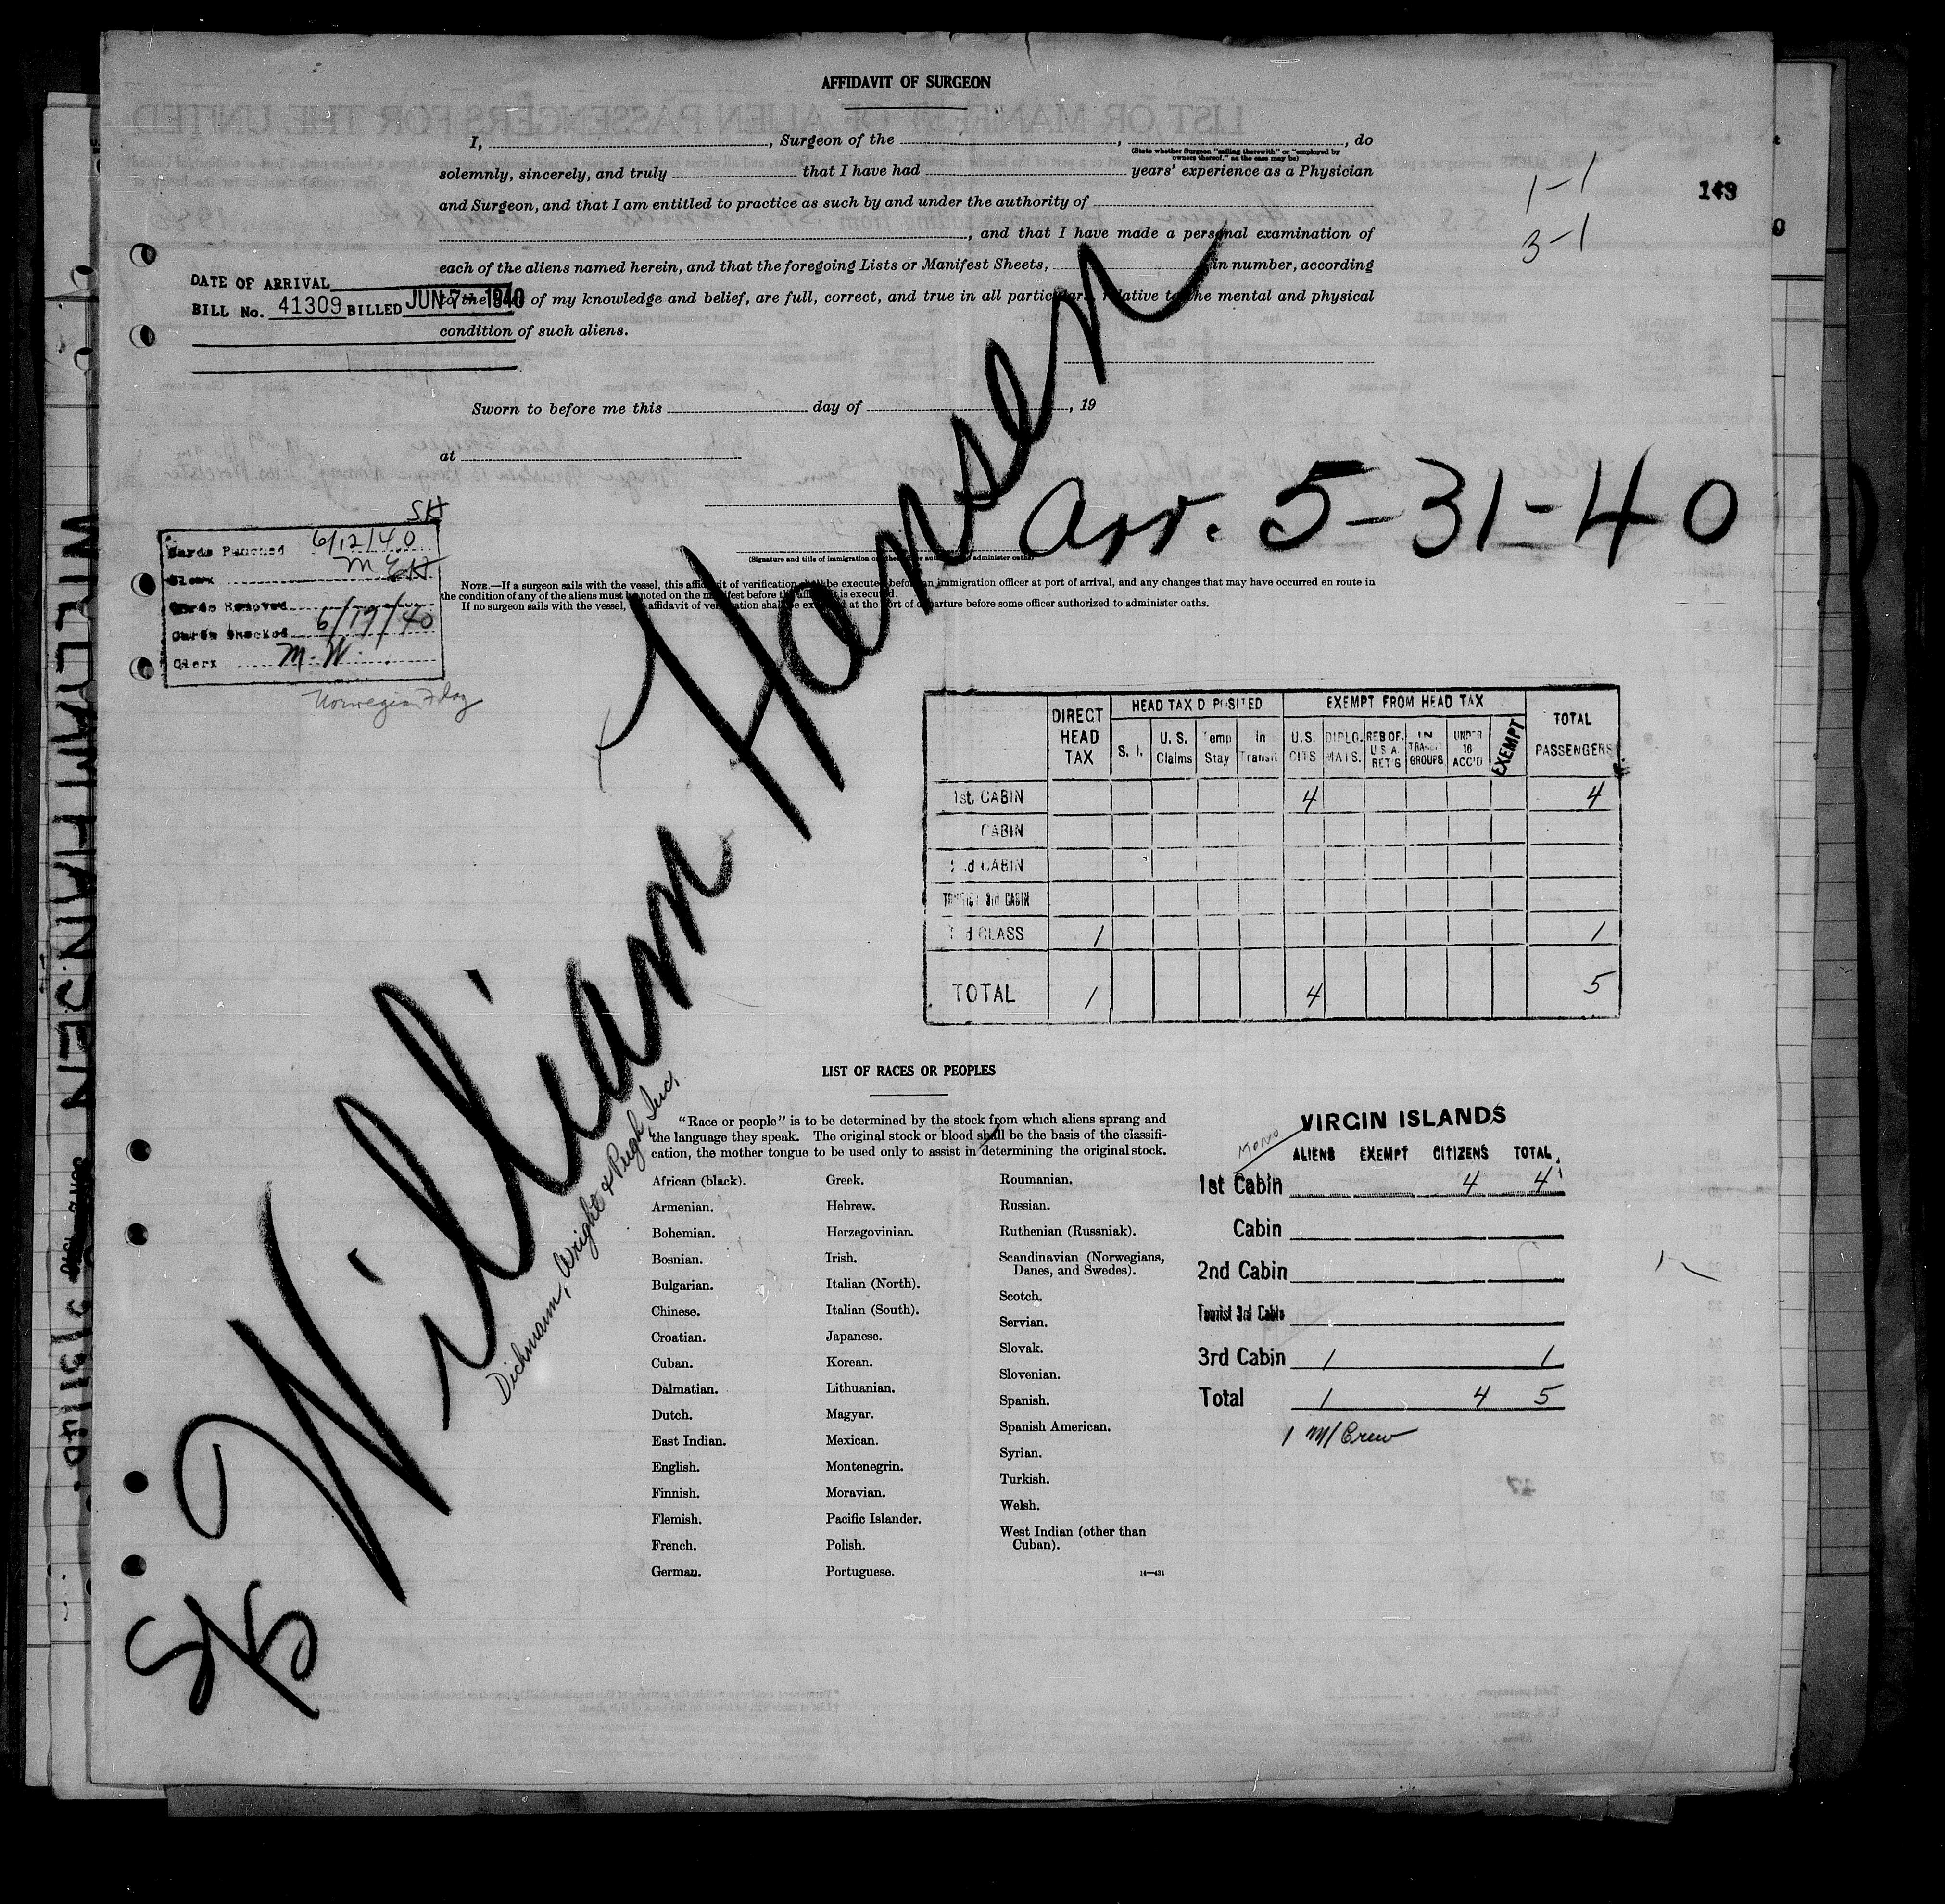 AFFIDAVIT OF SURGEON
I, , Surgeon of the , , do
(State whether Surgeon "sailing therewith" or "employed by
owners thereof," as the case may be)
solemnly, sincerely, and truly that I have had years' experience as a Physician
and Surgeon, and that I am entitled to practice as such by and under the authority of
, and that I have made a personal examination of
each of the aliens named herein, and that the foregoing Lists or Manifest Sheets, in number, according
to the of my knowledge and belief, are full, correct, and true in all particulars relative to the mental and physical
condition of such aliens.
1-1
3-1
143
DATE OF ARRIVAL
BILL No. 41309 BILLED JUN 7 - 1940
Sworn to before me this day of , 19
at
Arr. 5-31-40
(Signature and title of immigration officer or other authorized to administer oaths)
NOTE.—If a surgeon sails with the vessel, this affidavit of verification shall be executed before an immigration officer at port of arrival, and any changes that may have occurred en route in
the condition of any of the aliens must be noted on the manifest before the affidavit is executed.
If no surgeon sails with the vessel, the affidavit of verification shall be executed at the port of departure before some officer authorized to administer oaths.
SH
Cards Punched 6/12/40
Clerk
Cards Removed
Cards Checked 6/19/40
Clerk M. W.
Norwegian Flag
S/S William Hansen
Dichmann, Wright & Pugh, Inc.
DIRECT HEAD TAX
HEAD TAX D POSITED
EXEMPT FROM HEAD TAX
TOTAL PASSENGERS
S. I.
U. S. Claims
Temp Stay
In Transit
U.S. CITS
DIPLO. MATS.
RES OF. U S A. RET'G
IN TRANSIT GROUPS
UNDER 16 ACC'D
EXEMPT
1st. CABIN 4 4
CABIN
2nd CABIN
TOURIST 3rd CABIN
3rd CLASS 1 1
TOTAL 1 4 5
LIST OF RACES OR PEOPLES
"Race or people" is to be determined by the stock from which aliens sprang and
the language they speak. The original stock or blood shall be the basis of the classifi-
cation, the mother tongue to be used only to assist in determining the original stock.
African (black).
Armenian.
Bohemian.
Bosnian.
Bulgarian.
Chinese.
Croatian.
Cuban.
Dalmatian.
Dutch.
East Indian.
English.
Finnish.
Flemish.
French.
German.
Greek.
Hebrew.
Herzegovinian.
Irish.
Italian (North).
Italian (South).
Japanese.
Korean.
Lithuanian.
Magyar.
Mexican.
Montenegrin.
Moravian.
Pacific Islander.
Polish.
Portuguese.
Roumanian.
Russian.
Ruthenian (Russniak).
Scandinavian (Norwegians,
Danes, and Swedes).
Scotch.
Servian.
Slovak.
Slovenian.
Spanish.
Spanish American.
Syrian.
Turkish.
Welsh.
West Indian (other than
Cuban).
14—431
VIRGIN ISLANDS
ALIENS EXEMPT CITIZENS TOTAL
1st Cabin 4 4
Cabin
2nd Cabin
Tourist 3rd Cabin
3rd Cabin 1 1
Total 1 4 5
1 M/Crew
WILLIAM HANSEN